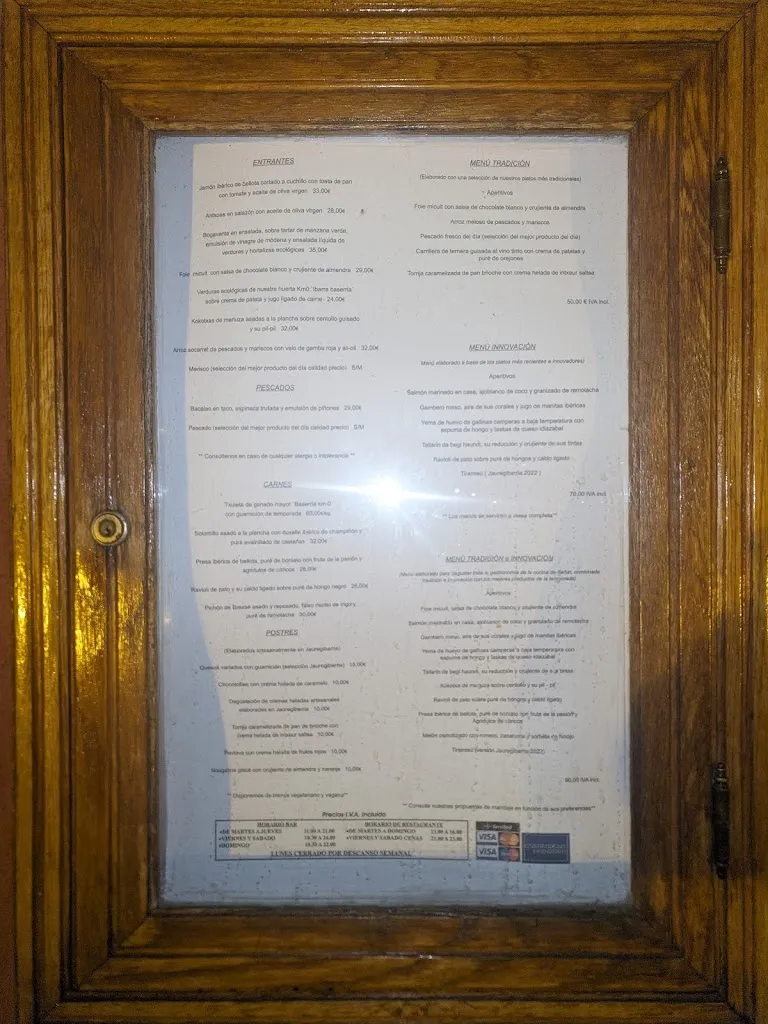 ENTRANTES
Jamón ibérico de bellota cortado a cuchillo con tosta de pan
con tomate y aceite de oliva virgen 33,00€
Anchoas en salazón con aceite de oliva virgen 28,00€
Bogavante en ensalada, sobre tartar de manzana verde,
emulsión de vinagre de módena y ensalada líquida de
verduras y hortalizas ecológicas 35,00€
Foie micuit con salsa de chocolate blanco y crujiente de almendra 29,00€
Verduras ecológicas de nuestra huerta Km0 "Ibarra baserria"
sobre crema de patata y jugo ligado de carne 24,00€
Kokotxas de merluza asadas a la plancha sobre centollo guisado
y su pil-pil 32,00€
Arroz socarrat de pescados y mariscos con velo de gamba roja y ali-oli 32,00€
Marisco (selección del mejor producto del día calidad precio) S/M
PESCADOS
Bacalao en taco, espinaca trufada y emulsión de piñones 29,00€
Pescado (selección del mejor producto del día calidad precio) S/M
** Consúltenos en caso de cualquier alergia o intolerancia **
CARNES
Txuleta de ganado mayor "Baserria km-0"
con guarnición de temporada
Solomillo asado a la plancha con duxelle ibérico de champiñón y
puré avainillado de castañas 32,00€
Presa ibérica de bellota, puré de boniato con fruta de la pasión y
agridulce de cítricos 28,00€
Ravioli de pato y su caldo ligado sobre puré de hongo negro
Pichón de Bresse asado y reposado, falso risotto de trigo y
puré de remolacha
POSTRES
(Elaborados artesanalmente en Jauregibarria)
Quesos variados con guarnición (selección Jauregibarria)
con crema helada de caramelo 10,00€
Degustación de cremas heladas artesanales
elaboradas en Jauregibarria 10,00€
Torrija caramelizada de pan de brioche con
crema helada de intxaur saltsa 10,00€
Pavlova con crema helada de frutos rojos 10,00€
Nougatine glacé con crujiente de almendra y naranja 10,00€
** Disponemos de menús vegetariano y vegano**
MENÚ TRADICIÓN
(Elaborado con una selección de nuestros platos más tradicionales)
Aperitivos
Foie micuit con salsa de chocolate blanco y crujiente de almendra
Arroz meloso de pescados y mariscos
Pescado fresco del día (selección del mejor producto del día)
Carrillera de ternera guisada al vino tinto con crema de patatas y
puré de orejones
Torrija caramelizada de pan brioche con crema helada de intxaur saltsa
50,00 € IVA incl.
MENÚ INNOVACIÓN
(Menú elaborado a base de los platos más recientes e innovadores)
Aperitivos
Salmón marinado en casa, ajoblanco de coco y granizado de remolacha
Gambero rosso, aire de sus corales y jugo de manitas ibéricas
Yema de huevo de gallinas camperas a baja temperatura con
espuma de hongo y lascas de queso idiazabal
Tallarín de begi haundi, su reducción y crujiente de sus tintas
Ravioli de pato sobre puré de hongos y caldo ligado
Tiramisú ( Jauregibarria 2022 )
70,00 IVA incl.
**Los menús se servirán a mesa completa**
MENÚ TRADISIÓN e INNOVACIÓN
Aperitivos
Foie micuit, salsa de chocolate blanco y crujiente de almendra
Salmón marinado en casa, ajoblanco de coco y granizado de remolacha
Gambero rosso, aire de sus corales y jugo de manitas ibéricas
Yema de huevo de gallinas camperas a baja temperatura con
espuma de hongo y lascas de queso idiazabal
Tallarín de begi haundi, su reducción y crujiente de sus tintas
Kokotxa de merluza sobre centollo y su pil - pil
Ravioli de pato sobre puré de hongos y caldo ligado
Presa ibérica de bellota, puré de boniato con fruta de la pasión y
Agridulce de cítricos
Melón osmotizado con romero, zanahoria y sorbete de hinojo
Tiramisú (versión Jauregibarria 2022)
90,00 IVA incl.
** Consulte nuestras propuestas de maridaje en función de sus preferencias**
Precios I.V.A. incluido
HORARIO BAR HORARIO DE RESTAURANTE
•DE MARTES A JUEVES 11.00 A 21.00 •DE MARTES A DOMINGO 13.00 A 16.00
•VIERNES Y SABADO 10.30 A 24.00 •VIERNES Y SABADO CENAS 21.00 A 23.00
•DOMINGO 10.30 A 22.00
LUNES CERRADO POR DESCANSO SEMANAL
VISA
VISA